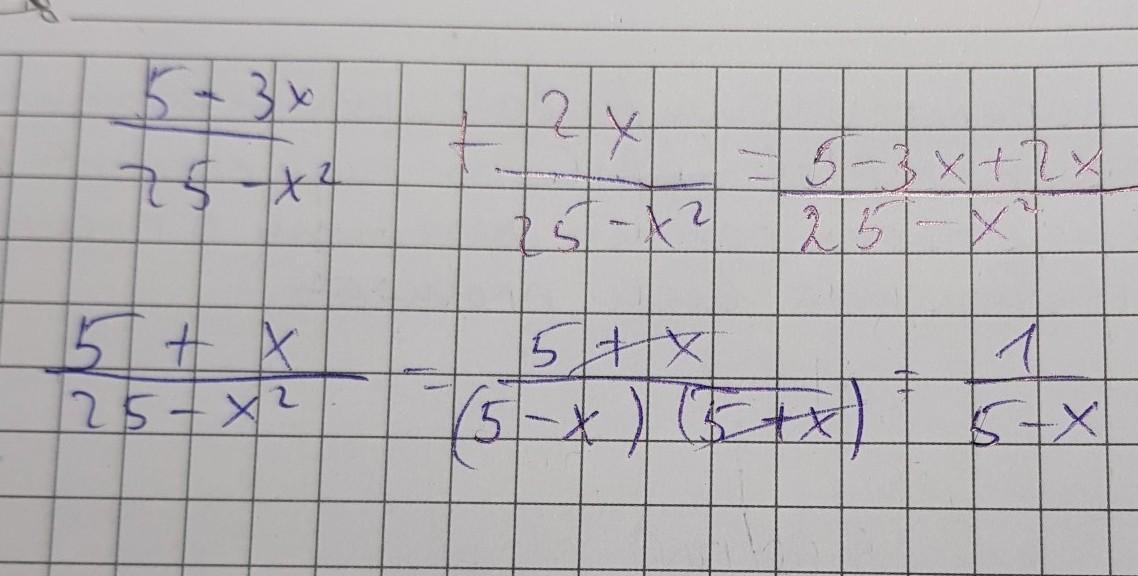 5 - 3x / 25 - x² + 2x / 25 - x² = 5 - 3x + 2x / 25 - x²
5 + x / 25 - x² = 5 + x / (5 - x) (5 + x) = 1 / 5 - x